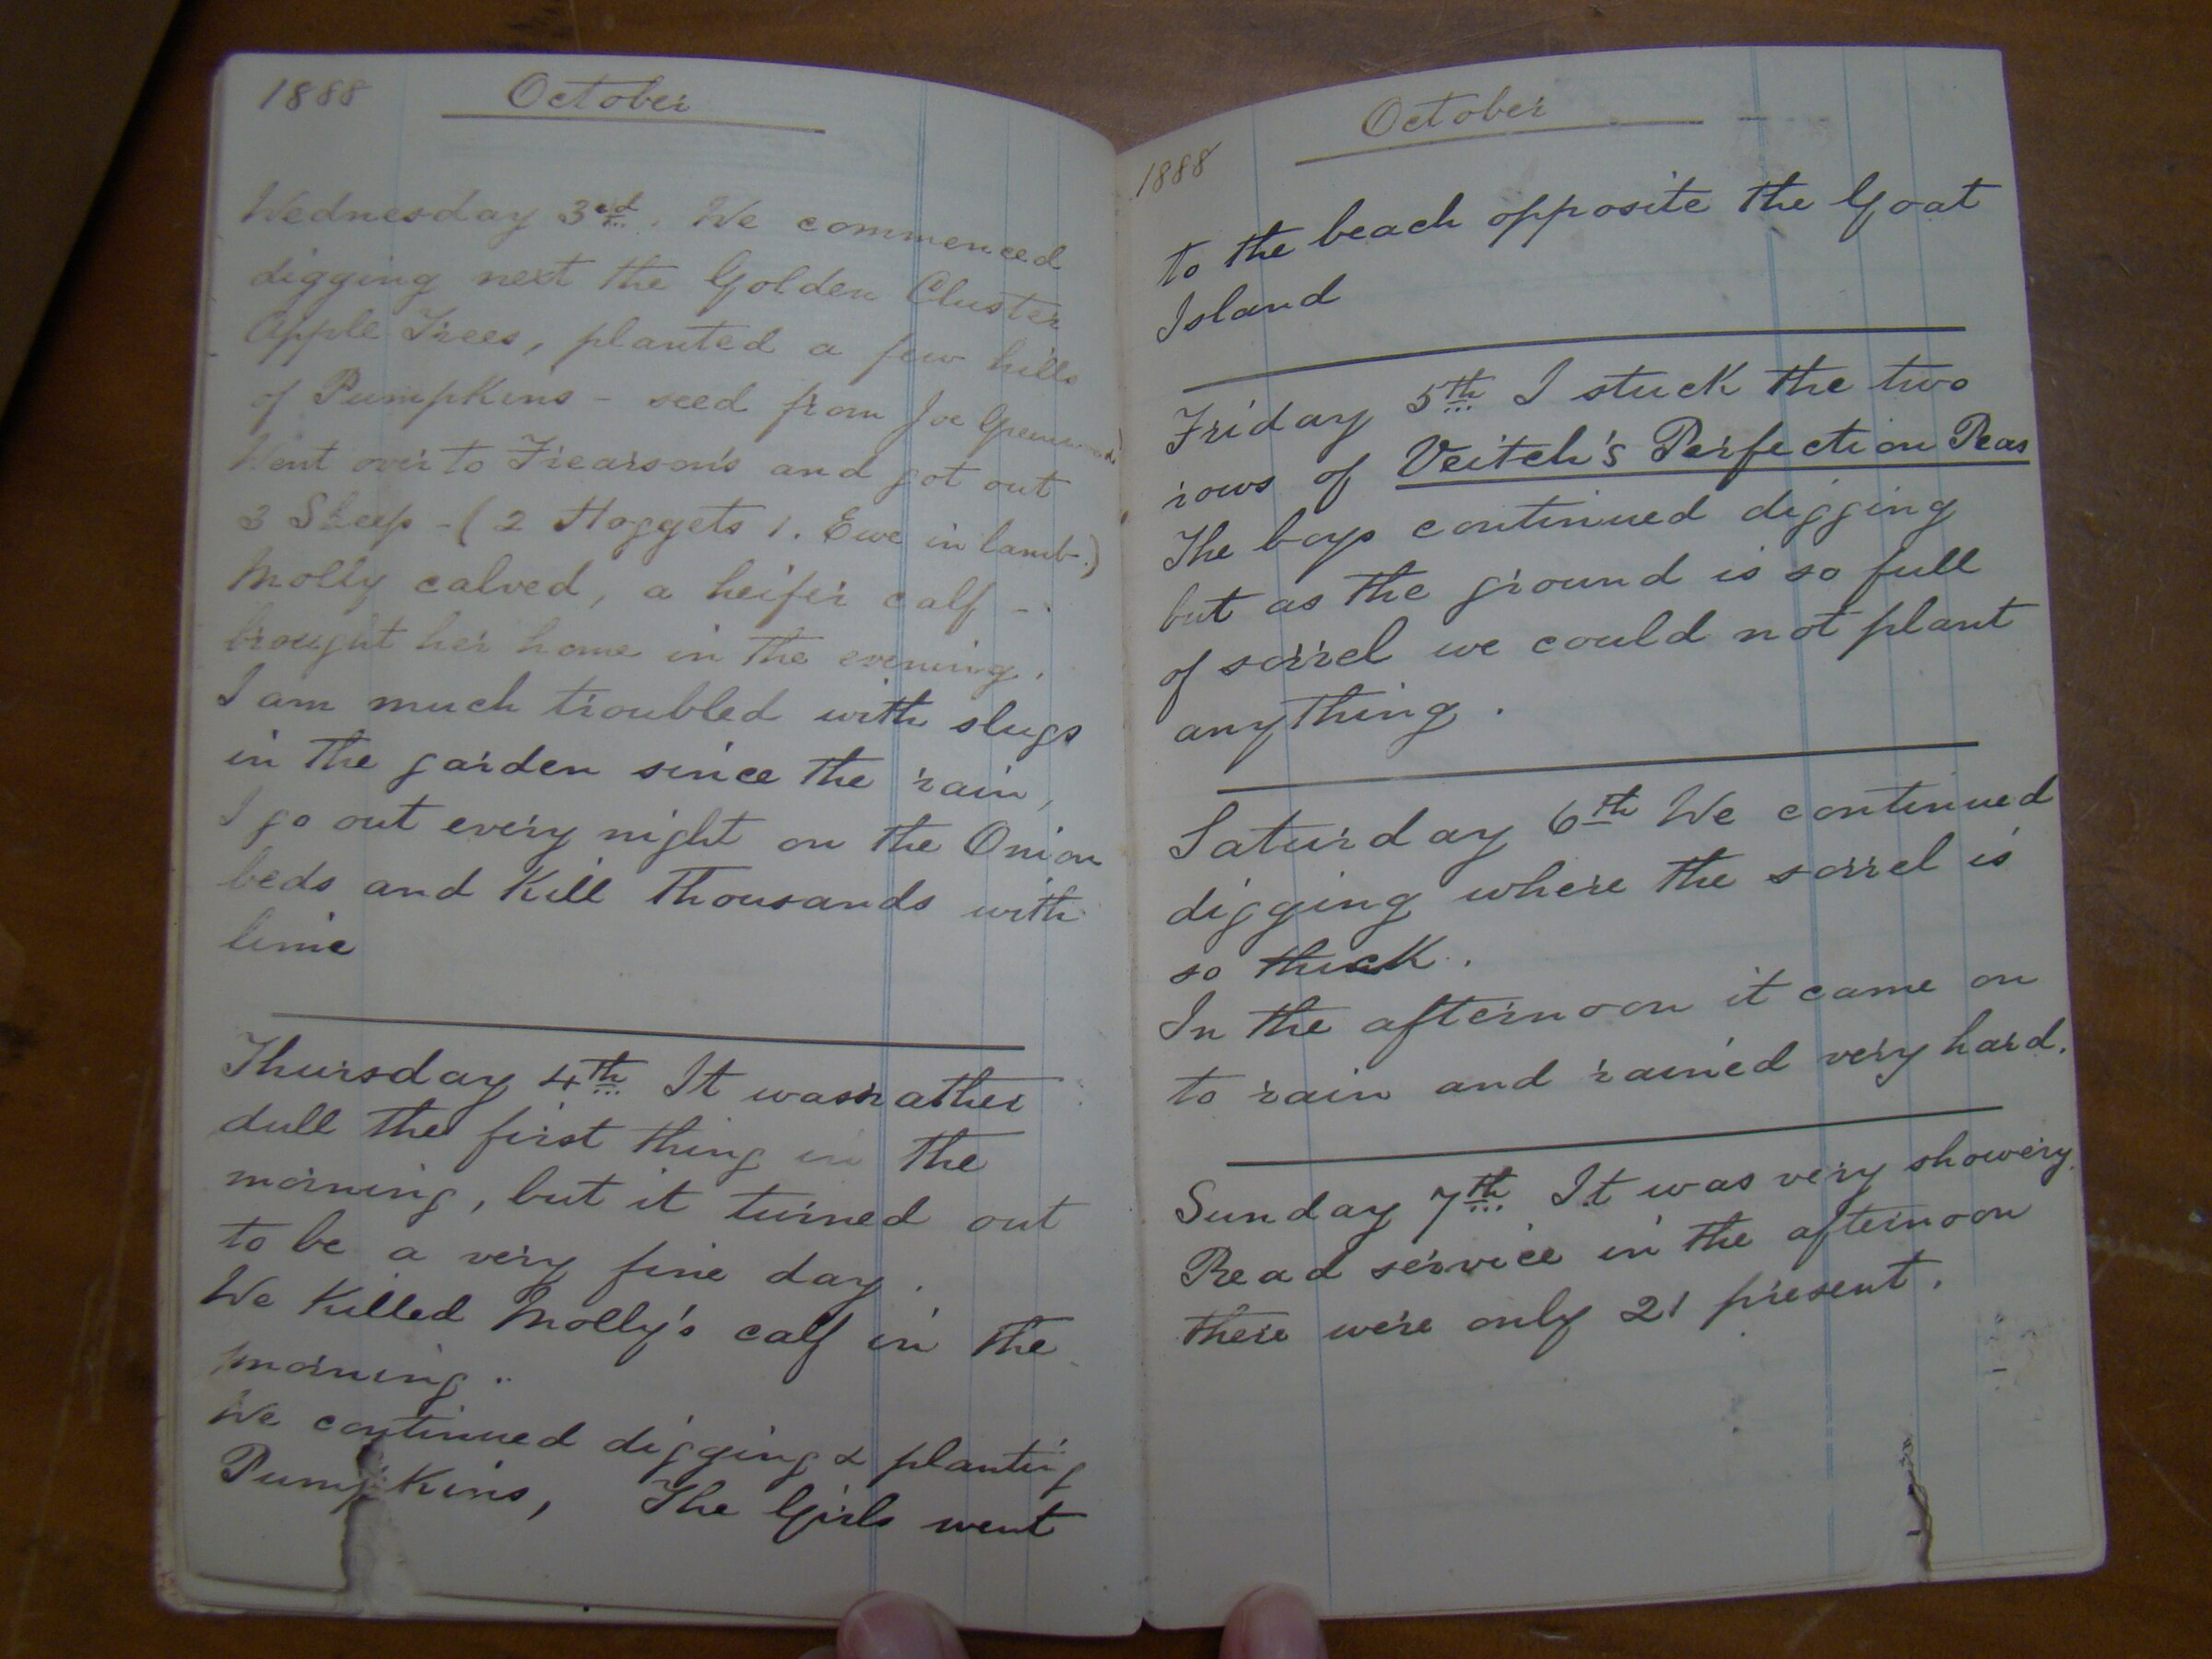 1888 October
Wednesday 3rd. We commenced
digging next the Golden Cluster
Apple Trees, planted a few hills
of Pumpkins - seed from Joe
Went over to Frearson's and got out
3 Sheep - (2 Hoggets 1. Ewe in lamb.)
Molly calved, a heifer calf -
brought her home in the evening.
I am much troubled with slugs
in the garden since the rain,
I go out every night on the Onion
beds and Kill Thousands with
lime
Thursday 4th It was rather
dull the first thing in the
morning, but it turned out
to be a very fine day.
We Killed Molly's calf in the
morning.
We continued digging & planting
Pumpkins, The Girls went
October
1888
to the beach opposite the Goat
Island
Friday 5th I stuck the two
rows of Veitch's Perfection Peas
The boys continued digging
but as the ground is so full
of sorrel we could not plant
anything.
Saturday 6th We continued
digging where the sorrel is
so thick.
In the afternoon it came on
to rain and rained very hard.
Sunday 7th It was very showery.
Read service in the afternoon
there were only 21 present.